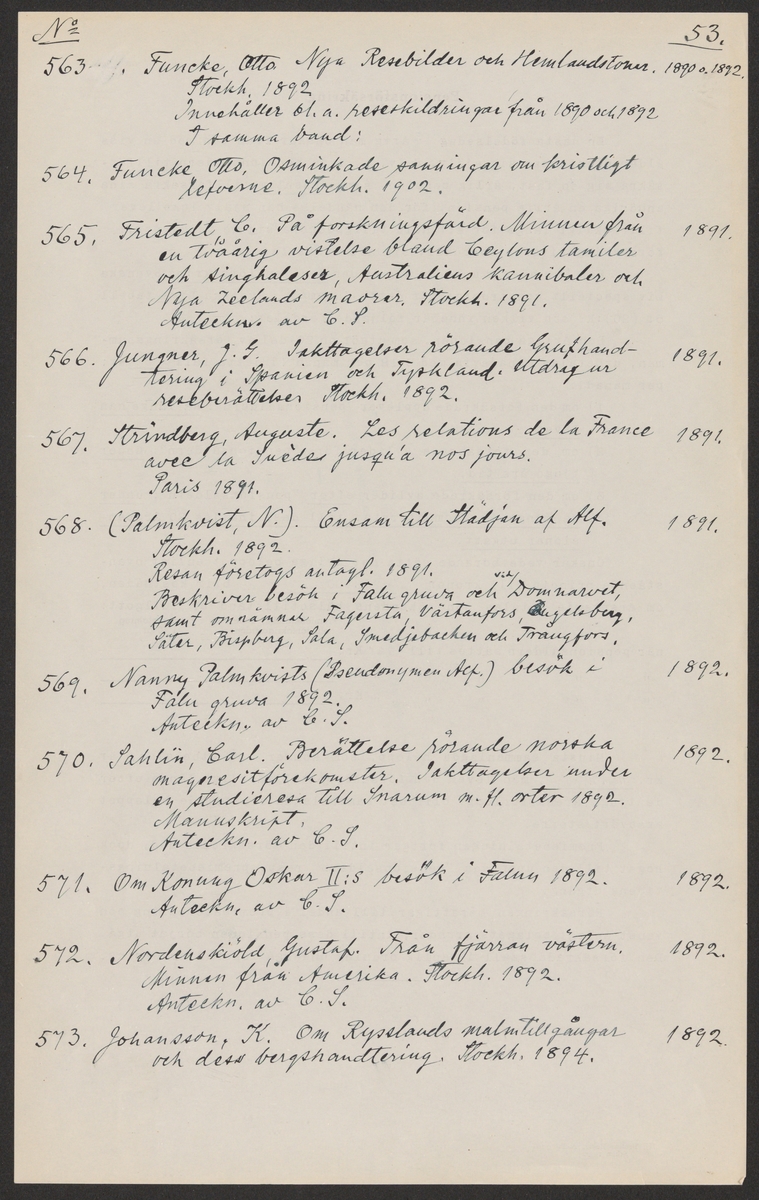 No 53.
563. Funcke, Otto Nya Resebilder och Hemlandstoner. 1890 o. 1892.
Stockh. 1892
Innehåller bl. a. reseskildringar från 1890 och 1892
I samma band:
564. Funcke, Otto. Osminkade sanningar om kristligt
lefverne. Stockh. 1902.
565. Fristedt C. På forskningsfärd. Minnen från 1891.
en tvåårig vistelse bland Ceylons tamiler
och singhaleser, Australiens kannibaler och
Nya Zeelands maorer. Stockh. 1891.
Anteckn. av C. S.
566. Jungner, J. G. Iakttagelser rörande Grufhand- 1891.
tering i Spanien och Tyskland. Utdrag ur
reseberättelser Stockh. 1892.
567. Strindberg, Auguste. Les relations de la France 1891.
avec la Suède jusqu'a nos jours.
Paris 1891.
568. (Palmkvist, N.). Ensam till Städjan af Alf. 1891.
Stockh. 1892.
Resan företogs antagl. 1891.
Beskriver besök i Falu gruva och vid Domnarvet,
samt omnämnar Fagersta, Västanfors, Engelsberg,
Säter, Bispberg, Sala, Smedjebacken och Trångfors.
569. Nanny Palmkvists (Pseudonymen Alf.) besök i 1892.
Falu gruva 1892.
Anteckn. av C. S.
570. Sahlin, Carl. Berättelse rörande norska 1892.
magnesitförekomster. Iakttagelser under
en studieresa till Snarum m. fl. orter 1892.
Manuskript.
Anteckn. av C. S.
571. Om Konung Oskar II:s besök i Falun 1892. 1892.
Anteckn. av C. S.
572. Nordenskiöld, Gustaf. Från fjärran västern. 1892.
Minnen från Amerika. Stockh. 1892.
Anteckn. av C. S.
573. Johansson, K. Om Rysslands malmtillgångar 1892.
och dess bergshandtering. Stockh. 1894.